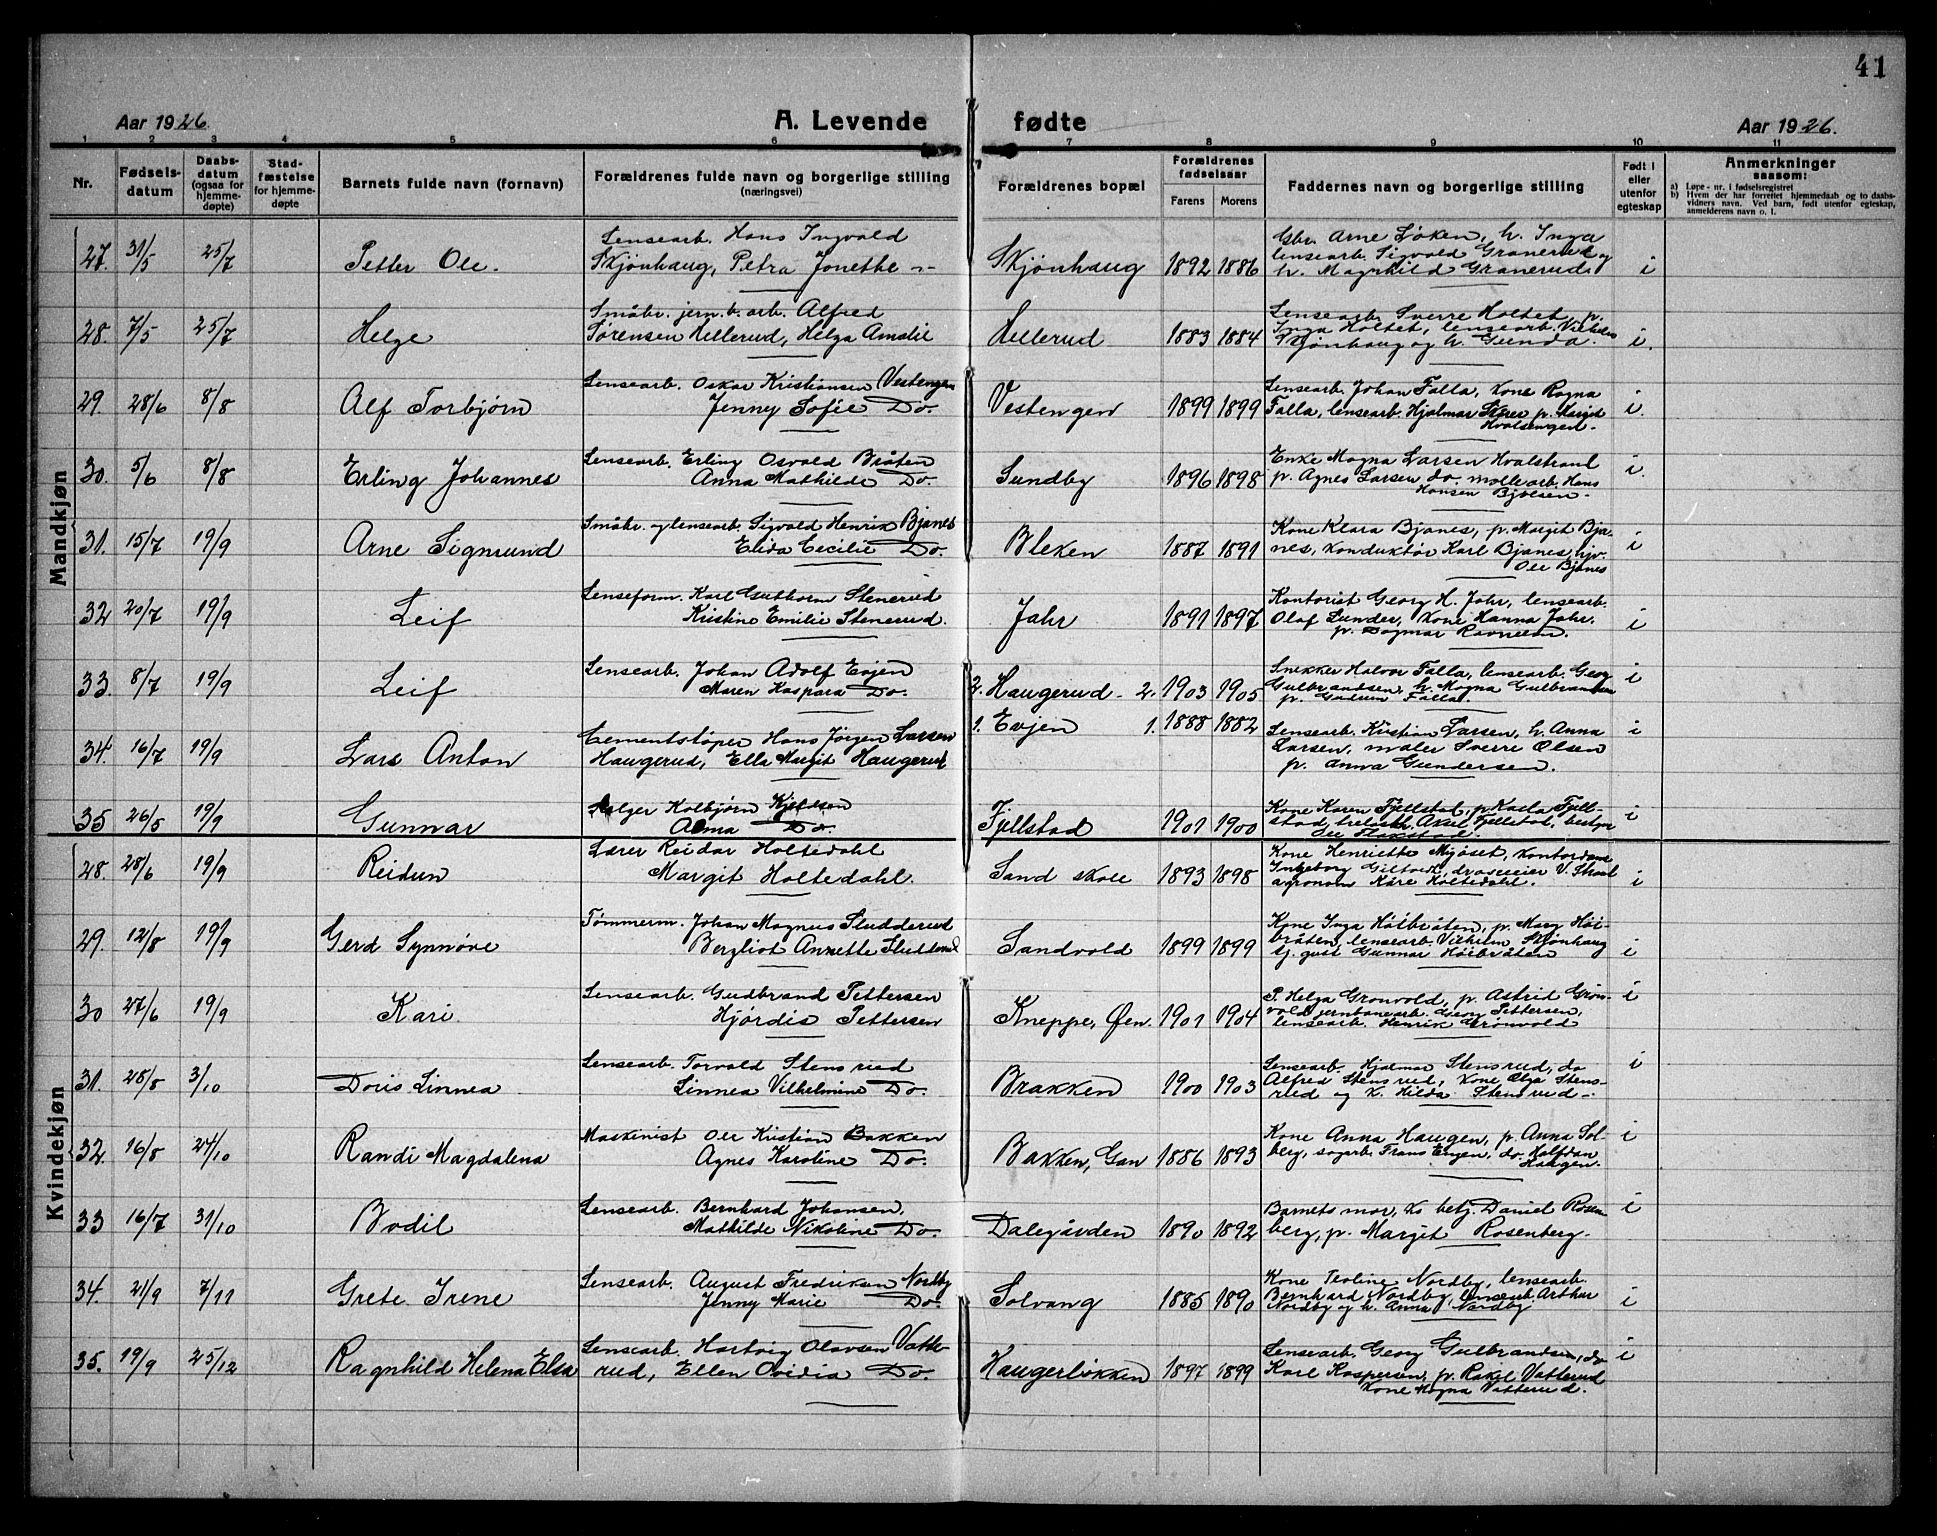 41
Aar 1926.
A. Levende fødte
Aar 1926.
1 2 3 4 5 6 7 8 9 10 11
Nr.
Fødselsdatum
Daabsdatum (ogsaa for hjemmedøpte)
Stadfæstelse for hjemmedøpte
Barnets fulde navn (fornavn)
Forældrenes fulde navn og borgerlige stilling
(næringsvei)
Forældrenes bopæl
Forældrenes fødselsaar
Farens Morens
Faddernes navn og borgerlige stilling
Født i eller utenfor egteskap
Anmerkninger
saasom:
a) Løpe-nr. i fødselsregistret
b) Hvem der har forrettet hjemmedaab og to daabsvidners navn. Ved barn, født utenfor egteskap, anmelderens navn o. l.
Mandkjøn
27. 31/5 25/7 Petter Ole.
Lensearb. Hans Ingvald
Skjønhaug, Petra Jonethe -"-
Skjønhaug 1892 1886
Gbr. Arne Løken, h. Inga
lensearb. Sigvald Granerud og
h. Magnhild Granerud.
i
28. 7/5 25/7 Helge
Småbr. jern.b.arb. Alfred
Sørensen Hellerud, Helga Amalie
Hellerud 1883 1884
Lensearb. Sverre Holtet, p.
Inga Holtet, lensearb. Vilhelm
Skjønhaug og h. Gunda.
i.
29. 28/6 8/8 Alf Torbjørn
Lensearb. Oskar Kristiansen Vestengen
Jenny Sofie Do.
Vestengen 1899 1899
Lensearb. Johan Falla, Kone Ragna
Falla, lensearb. Hjalmar p. Margit
Hvalsengen.
i.
30. 5/6 8/8 Erling Johannes
Lensearb. Erling Osvald Bråten
Anna Mathilde Do.
Sundby 1896 1898
Enke Magna Larsen Hvalstrand
p. Agnes Larsen do. møllearb. Hans
Hansen Bjølsen.
i.
31. 15/7 19/9 Arne Sigmund
Småbr. og lensearb. Sigvald Henrik Bjanes
Elida Cecilie Do.
Bleken 1887 1891
Kone Klara Bjanes, p. Margit Bjanes, Konduktør Karl Bjanes,
Ole Bjanes
i
32 20/7 19/9 Leif
Lenseform. Karl Guthorm Stenerud
Kristine Emilie Stenerud.
Jahr 1891 1897
Kontorist Georg H. Jahr, lensearb.
Olaf Lunder, Kone Hanna Jahr.
p. Dagmar
i
33. 8/7 19/9 Leif
Lensearb. Johan Adolf Evjen
Maren Kaspara Do.
2. Haugerud - 2. 1903 1905
Snekker Halvor Falla, lensearb. Georg
Gulbrandsen, h. Magna Gulbrandsen
p. Gudrun Falla.
i
34. 16/7 19/9 Lars Anton
Cementstøper Hans Jørgen Larsen
Haugerud, Ella Margit Haugerud
1. Evjen 1. 1888 1882
Lensearb. Kristian Larsen, h. Anna
Larsen, maler Sverre Olsen
p. Anna Gundersen.
i
35 26/5 19/9 Gunnar
Selger Kolbjørn Kjeldsen
Alma Do.
Fjellstad 1901 1900
Kone Karen Fjellstad, p. Karla Fjellstad, Aksel Fjellstad,
i
Kvindekjøn
28. 28/6 19/9 Reidun
Lærer Reidar Holtedahl
Margit Holtedahl.
Sand skole 1893 1898
Kone Henriette Mjøset, Kontordame
Ingeborg
agronom Kåre Holtedahl.
i
29. 12/8 19/9 Gerd Synnøve
Tømmerm. Johan Magnus Studderud
Bergliot Annette Studderud
Sandvold 1899 1899
Kone Inga Høibråten, p. Mary Høibråten, lensearb. Vilhelm Skjønhaug
tj. gut Gunnar Høibråten
i
30 27/6 19/9 Kari
Lensearb. Gudbrand Pettersen
Hjørdis Pettersen
Kneppe, Øen 1901 1904
P. Helga Grønvold, p. Astrid Grønvold, jernbanearb. Georg Pettersen,
lensearb. Henrik Grønvold
i
31. 28/8 3/10 Doris Linnea
Lensearb. Torvald Stensrud
Linnea Vilhelmine Do.
Brakken 1900 1903
Lensearb. Hjalmar Stensrud, do
Alfred Stensrud, Kone Olga Stensrud og K. Hilda Stensrud.
i
32. 16/8 24/10 Randi Magdalena
Maskinist Ole Kristian Bakken
Agnes Karoline Do.
Bakken, Gan 1886 1893
Kone Anna Haugen, p. Anna Solberg, sagarb. Frans Engen, do. Halfdan
Haugen.
i
33 16/7 31/10 Bodil
Lensearb. Bernhard Johansen,
Mathilde Nikoline Do.
Dalegården 1890 1892
Barnets mor, betj. Daniel Rosenberg, p. Margit Rosenberg.
i
34. 21/9 7/11 Grete Irene
Lensearb. August Fredriksen Nordby
Jenny Marie Do.
Solvang 1885 1890
Kone Teoline Nordby, lensearb.
Bernhard Nordby, lensearb Arthur
Nordby og h. Anna Nordby
i
35. 19/9 25/12 Ragnhild Helena Elsa
Lensearb. Hartvig Olavsen Vatterud, Ellen Ovidia Do.
Haugerløkken 1897 1899
Lensearb. Georg Gulbrandsen, do
Karl Kaspersen, p. Rakel Vatterud
Kone Magna Vatterud.
i